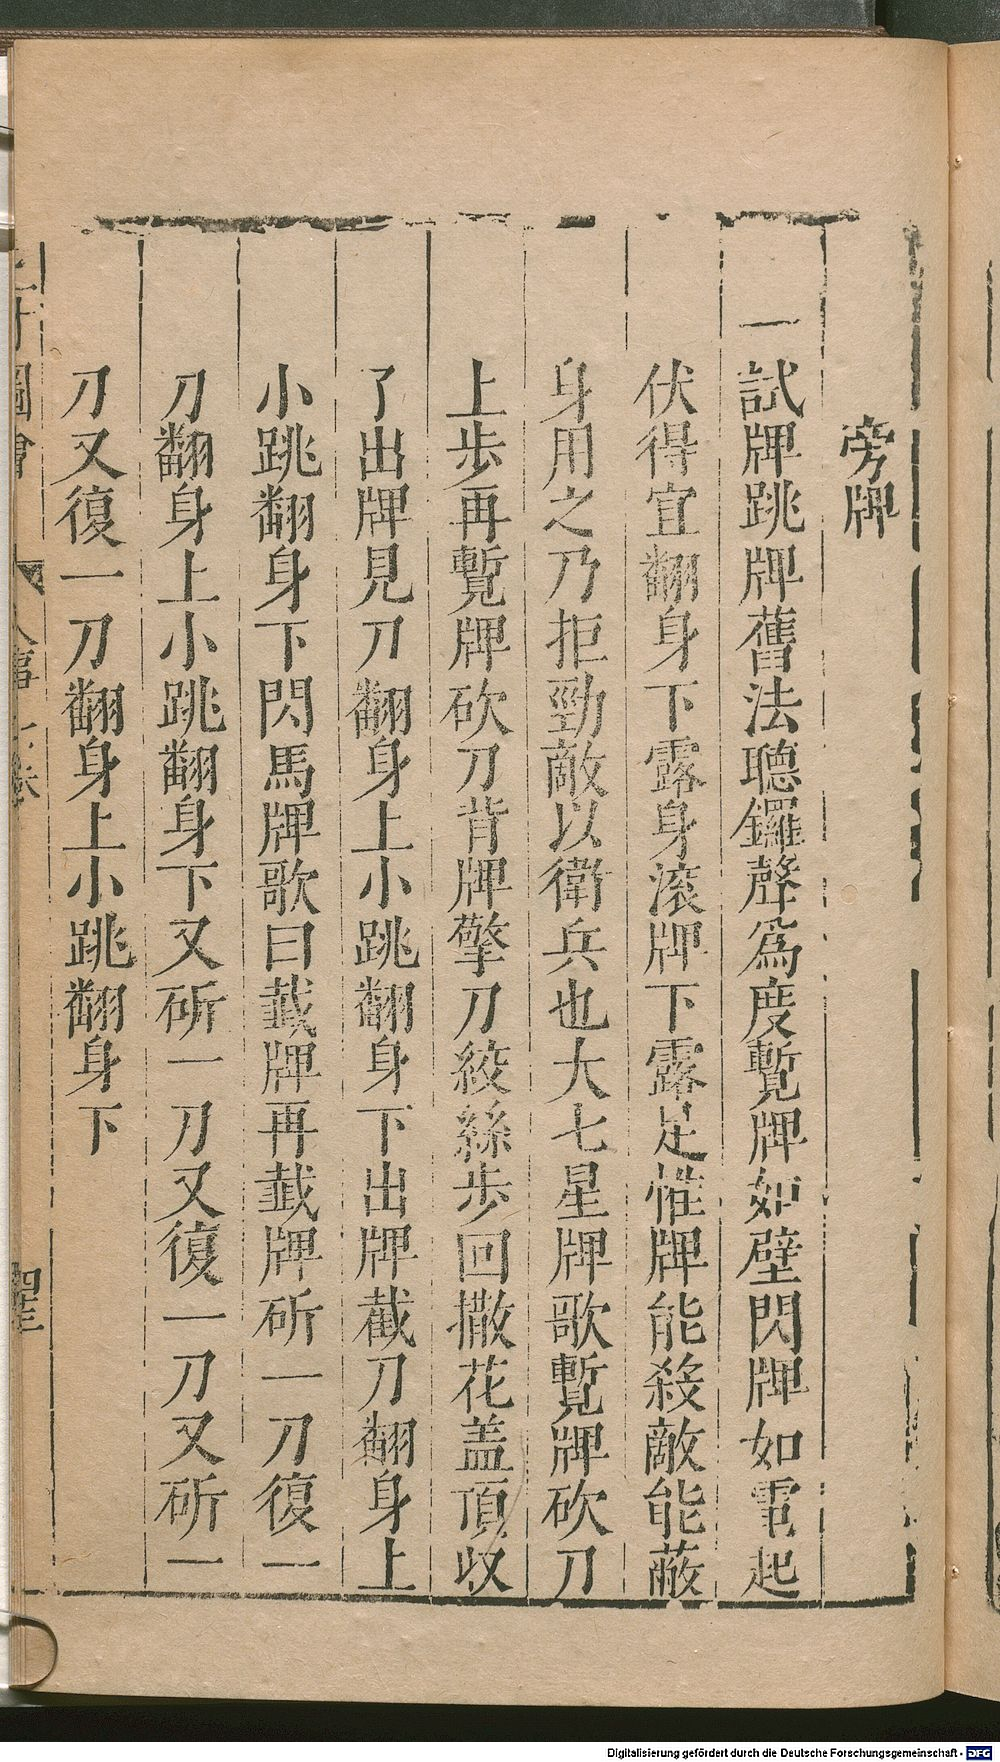 旁牌
一試牌跳牌舊法聽鑼聲爲度蹔牌如壁閃牌如電起
伏得宜翻身下露身滚牌下露足惟牌能殺敵能蔽
身用之乃拒勁敵以衛兵也大七星牌歌蹔牌砍刀
上步再蹔牌砍刀背牌擎刀絞絲步回撒花盖頂収
了出牌見刀翻身上小跳翻身下出牌截刀翻身上
小跳翻身下閃馬牌歌曰截牌再截牌斫一刀復一
刀翻身上小跳翻身下又斫一刀又復一刀又斫一
刀又復一刀翻身上小跳翻身下
圖會 人事七卷
Digitalisierung gefördert durch die Deutsche Forschungsgemeinschaft - DFG